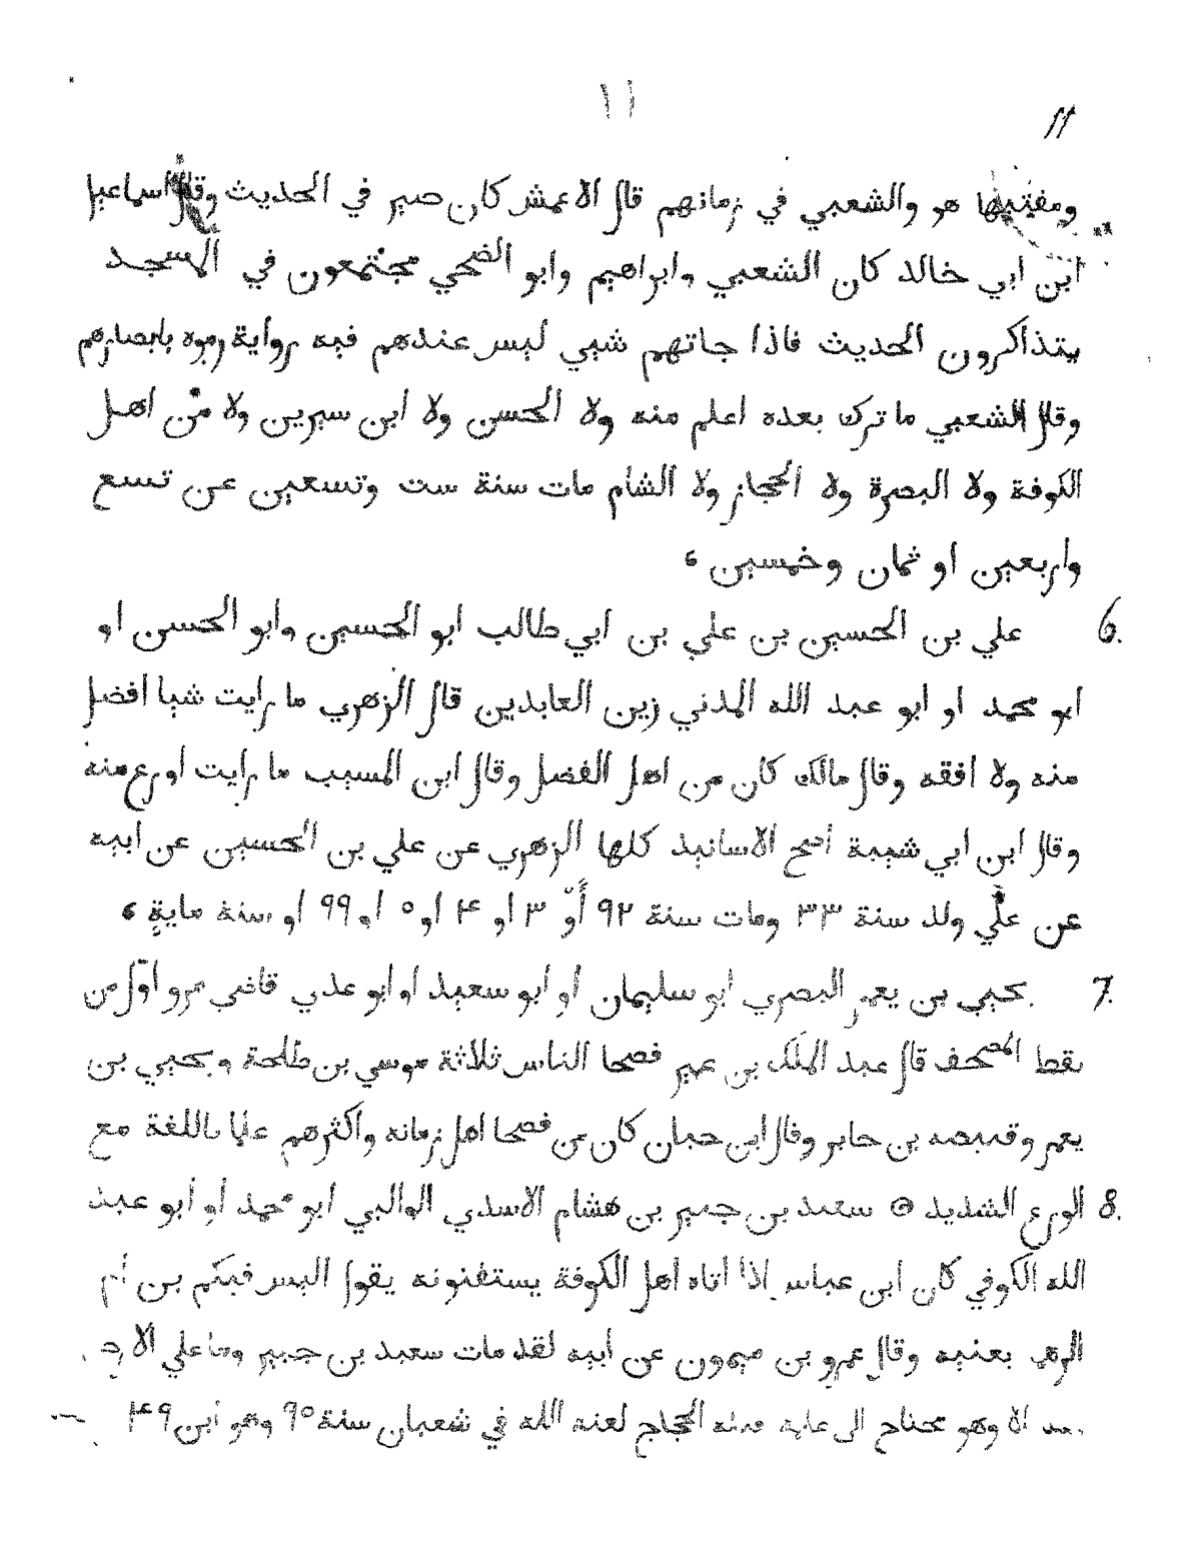 ١١
11
ومفتيها هو والشعبي في زمانهم قال الاعمش كان صير في الحديث وقال اسماعيل
ابن ابي خالد كان الشعبي وابراهيم وابو الضحي مجتمعون في المسجد
يتذاكرون الحديث فاذا جاتهم شيي ليس عندهم فيه رواية رموه بابصارهم
وقال الشعبي ما ترك بعده اعلم منه ولا الحسن ولا ابن سيرين ولا من اهل
الكوفة ولا البصرة ولا الحجاز ولا الشام مات سنة ست وتسعين عن تسع
واربعين او ثمان وخمسين ،
6. علي بن الحسين بن علي بن ابي طالب ابو الحسين وابو الحسن او
ابو محمد او ابو عبد الله المدني زين العابدين قال الزهري ما رايت شيا افضل
منه ولا افقه وقال مالك كان من اهل الفضل وقال ابن المسيب ما رايت اورع منه
وقال ابن ابي شيبة أصح الاسانيد كلها الزهري عن علي بن الحسين عن ابيه
عن علي ولد سنة ٣٣ ومات سنة ٩٢ أو ٣ او ۴ او ٥ او ٩٩ او سنة ماية ،
7. يحيي بن يعمر البصري ابو سليمان أو أبو سعيد او ابو عدي قاضي مرو اول من
نقط المصحف قال عبد الملك بن عمير فصحا الناس ثلاثة موسي بن طلحة ويحيي بن
يعمر وقبيصه بن جابر وقال ابن حبان كان من فصحا اهل زمانه واكثرهم علما باللغة مع
8. الورع الشديد ۞ سعيد بن جبير بن هشام الاسدي الوالبي ابو محمد أو أبو عبد
الله الكوفي كان ابن عباس اذا أتاه أهل الكوفة يستفتونه يقول اليس فيكم بن أم
بعنيه وقال عمرو بن ميمون عن أبيه لقد مات سعيد بن جبير وما علي
الا وهو محتاج الى علمه قتله الحجاج لعنه الله في شعبان سنة ٩٥ وهو أبن ۴٩